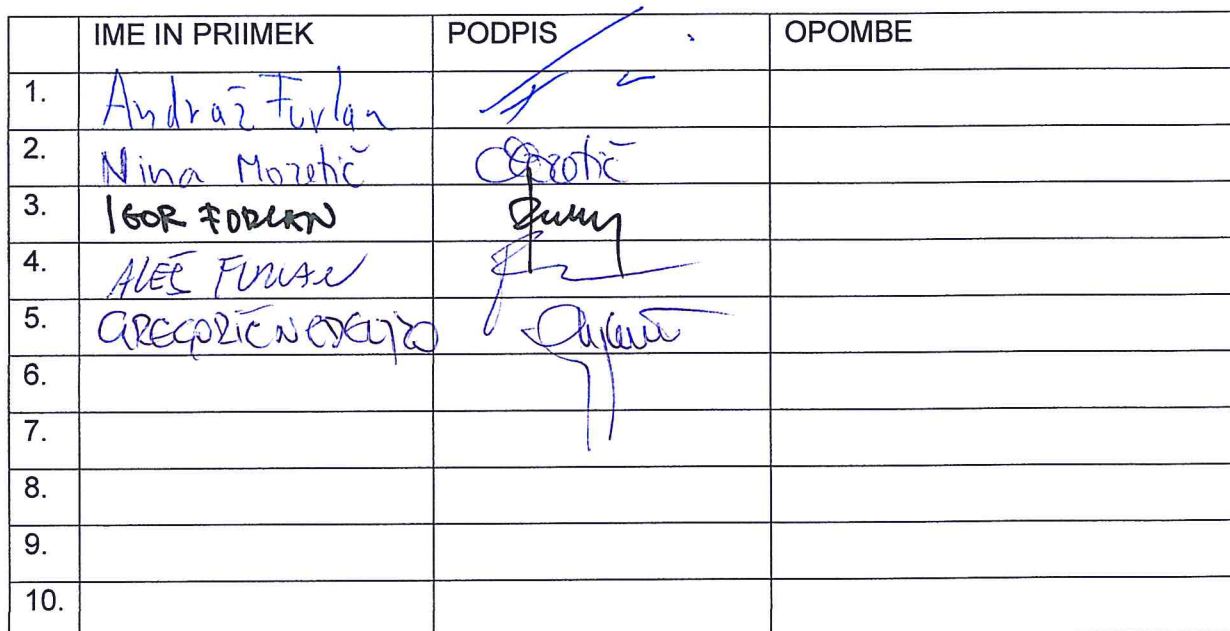 IME IN PRIIMEK PODPIS OPOMBE
1. Andraž Furlan
2. Nina Mozetič
3. IGOR FURLAN
4. ALEŠ FURLAN
5. GREGORIČ NEDELJKO
6.
7.
8.
9.
10.